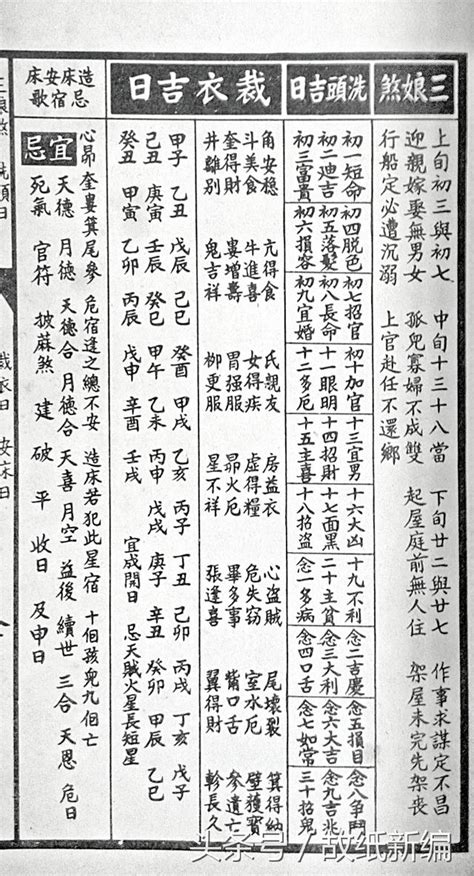 三娘煞
上旬初三與初七 中旬十三十八當 下旬廿二與廿七 作事求謀定不昌
迎親嫁娶無男女 孤兒寡婦不成雙 起屋庭前無人住 架屋未完先架喪
行船定必遭沉溺 上官赴任不還鄉
洗頭吉日
初一短命 初二迪吉 初三富貴
初四脫色 初五落髮 初六損容
初七招官 初八長命 初九宜婚
初十加官 十一眼明 十二多厄
十三宜男 十四招財 十五主喜
十六大凶 十七面黑 十八招盜
十九不利 二十主貧 念一多病
念二吉慶 念三大利 念四口舌
念五損目 念六大吉 念七如常
念八爭鬥 念九吉兆 三十招鬼
裁衣吉日
角安穩 亢得食 氐親友 房益衣 心盜賊 尾壞裂 箕得納
斗美食 牛進喜 女得疾 虛得糧 危失窃 室水厄 壁獲寶
奎得財 婁增壽 胃强服 昴火厄 畢多事 觜口舌 參遺亡
井離別 鬼吉祥 柳更服 星不祥 張逢喜 翼得財 軫長久
甲子 乙丑 戊辰 己巳 癸酉 甲戌 乙亥 丙子 丁丑 己卯 丙戌 丁亥 戊子
己丑 庚寅 壬辰 癸巳 甲午 乙未 丙申 戊戌 庚子 辛丑 癸卯 甲辰 乙巳
癸丑 甲寅 乙卯 丙辰 戊申 辛酉 壬戌 宜成開日 忌天賊火星長短星
造床安床
忌宿歌
心昴奎婁箕尾參 危宿逢之總不安 造床若犯此星宿 十個孩兒九個亡
宜 天德 月德 天德合 月德合 天喜 月空 益後 續世 三合 天恩 危日
忌 死氣 官符 披麻煞 建 破 平 收日 及申日
头条号/故纸新编